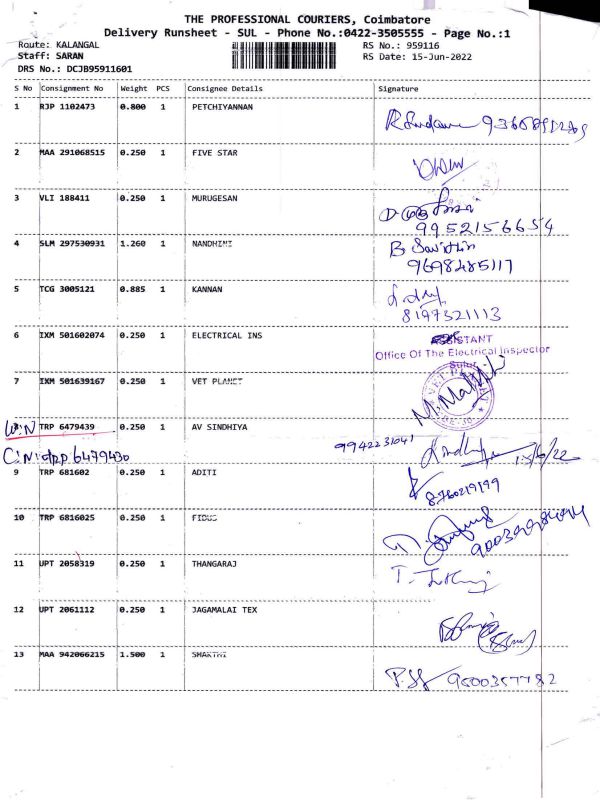 THE PROFESSIONAL COURIERS, Coimbatore
Delivery Runsheet - SUL - Phone No.:0422-3505555 - Page No.:1
Route: KALANGAL RS No.: 959116
Staff: SARAN RS Date: 15-Jun-2022
DRS No.: DCJB95911601
S No Consignment No Weight PCS Consignee Details Signature
1 RJP 1102473 0.800 1 PETCHIYANNAN
2 MAA 291068515 0.250 1 FIVE STAR
3 VLI 188411 0.250 1 MURUGESAN
9952156654
4 SLM 297530931 1.260 1 NANDHINI
9698485117
5 TCG 3005121 0.885 1 KANNAN
8197321113
6 IXM 501602074 0.250 1 ELECTRICAL INS
ASSISTANT
Office Of The Electrical Inspector
Sulur
7 IXM 501639167 0.250 1 VET PLANET
TRP 6479439 0.250 1 AV SINDHIYA
9942231041 15/6/22
9 TRP 681602 0.250 1 ADITI
8760219199
10 TRP 6816025 0.250 1 FIDUS
11 UPT 2058319 0.250 1 THANGARAJ
12 UPT 2061112 0.250 1 JAGAMALAI TEX
13 MAA 942066215 1.500 1 SHAKTHI
9600357782